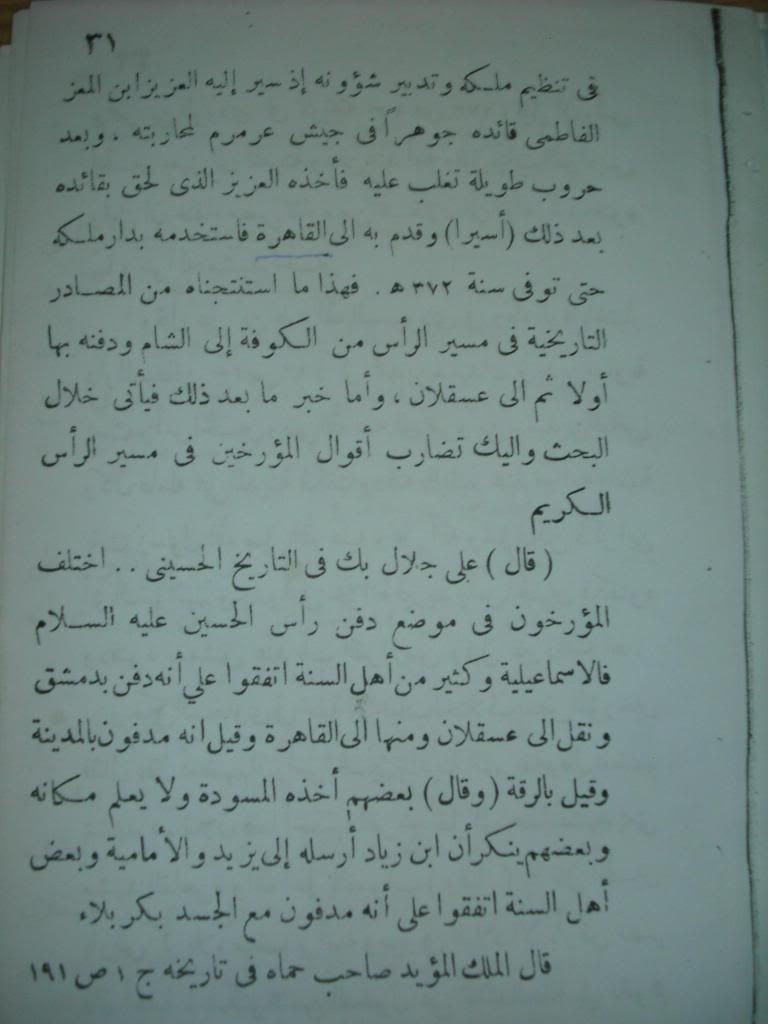 ٣١
فى تنظيم ملكه وتدبير شؤونه إذ سير إليه العزيز ابن المعز
الفاطمى قائده جوهراً فى جيش عرمرم لمحاربته . وبعد
حروب طويلة تغلب عليه فأخذه العزيز الذى لحق بقائده
بعد ذلك (أسيرا) وقدم به الى القاهرة فاستخدمه بدار ملكه
حتى توفى سنة ٣٧٢ ه . فهذا ما استنتجناه من المصادر
التاريخية فى مسير الرأس من الكوفة إلى الشام ودفنه بها
أولا ثم الى عسقلان ، وأما خبر ما بعد ذلك فيأتى خلال
البحث واليك تضارب أقوال المؤرخين فى مسير الرأس
الكريم
( قال ) على جلال بك فى التاريخ الحسينى .. اختلف
المؤرخون فى موضع دفن رأس الحسين عليه السلام
فالاسماعيلية وكثير من أهل السنة اتفقوا علي أنه دفن بدمشق
ونقل الى عسقلان ومنها الى القاهرة وقيل انه مدفون بالمدينة
وقيل بالرقة (وقال) بعضهم أخذه المسودة ولا يعلم مكانه
وبعضهم ينكر أن ابن زياد أرسله إلى يزيد والأمامية وبعض
أهل السنة اتفقوا على أنه مدفون مع الجسد بكربلاء
قال الملك المؤيد صاحب حماه فى تاريخه ج ١ ص ١٩١